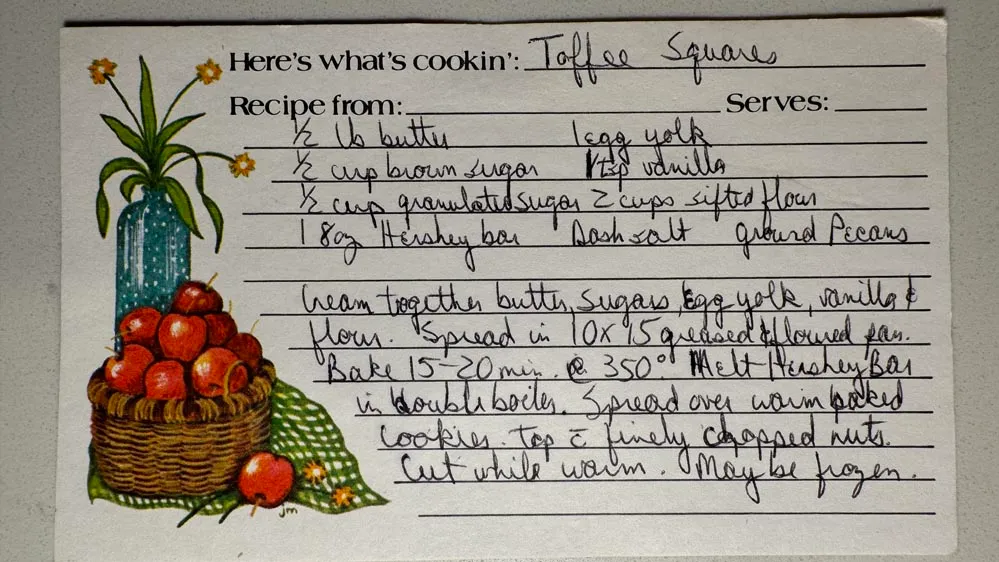 Here's what's cookin': Toffee Squares
Recipe from: Serves:
½ lb butter 1 egg yolk
½ cup brown sugar 1 tsp vanilla
½ cup granulated sugar 2 cups sifted flour
1 8oz Hershey bar Dash salt ground Pecans
Cream together butter, sugars, Egg yolk, vanilla &
flour. Spread in 10x15 greased & floured pan.
Bake 15-20 min. @ 350° Melt Hershey Bar
in double boiler. Spread over warm baked
cookies. Top c̄ finely chopped nuts.
Cut while warm. May be frozen.
jm